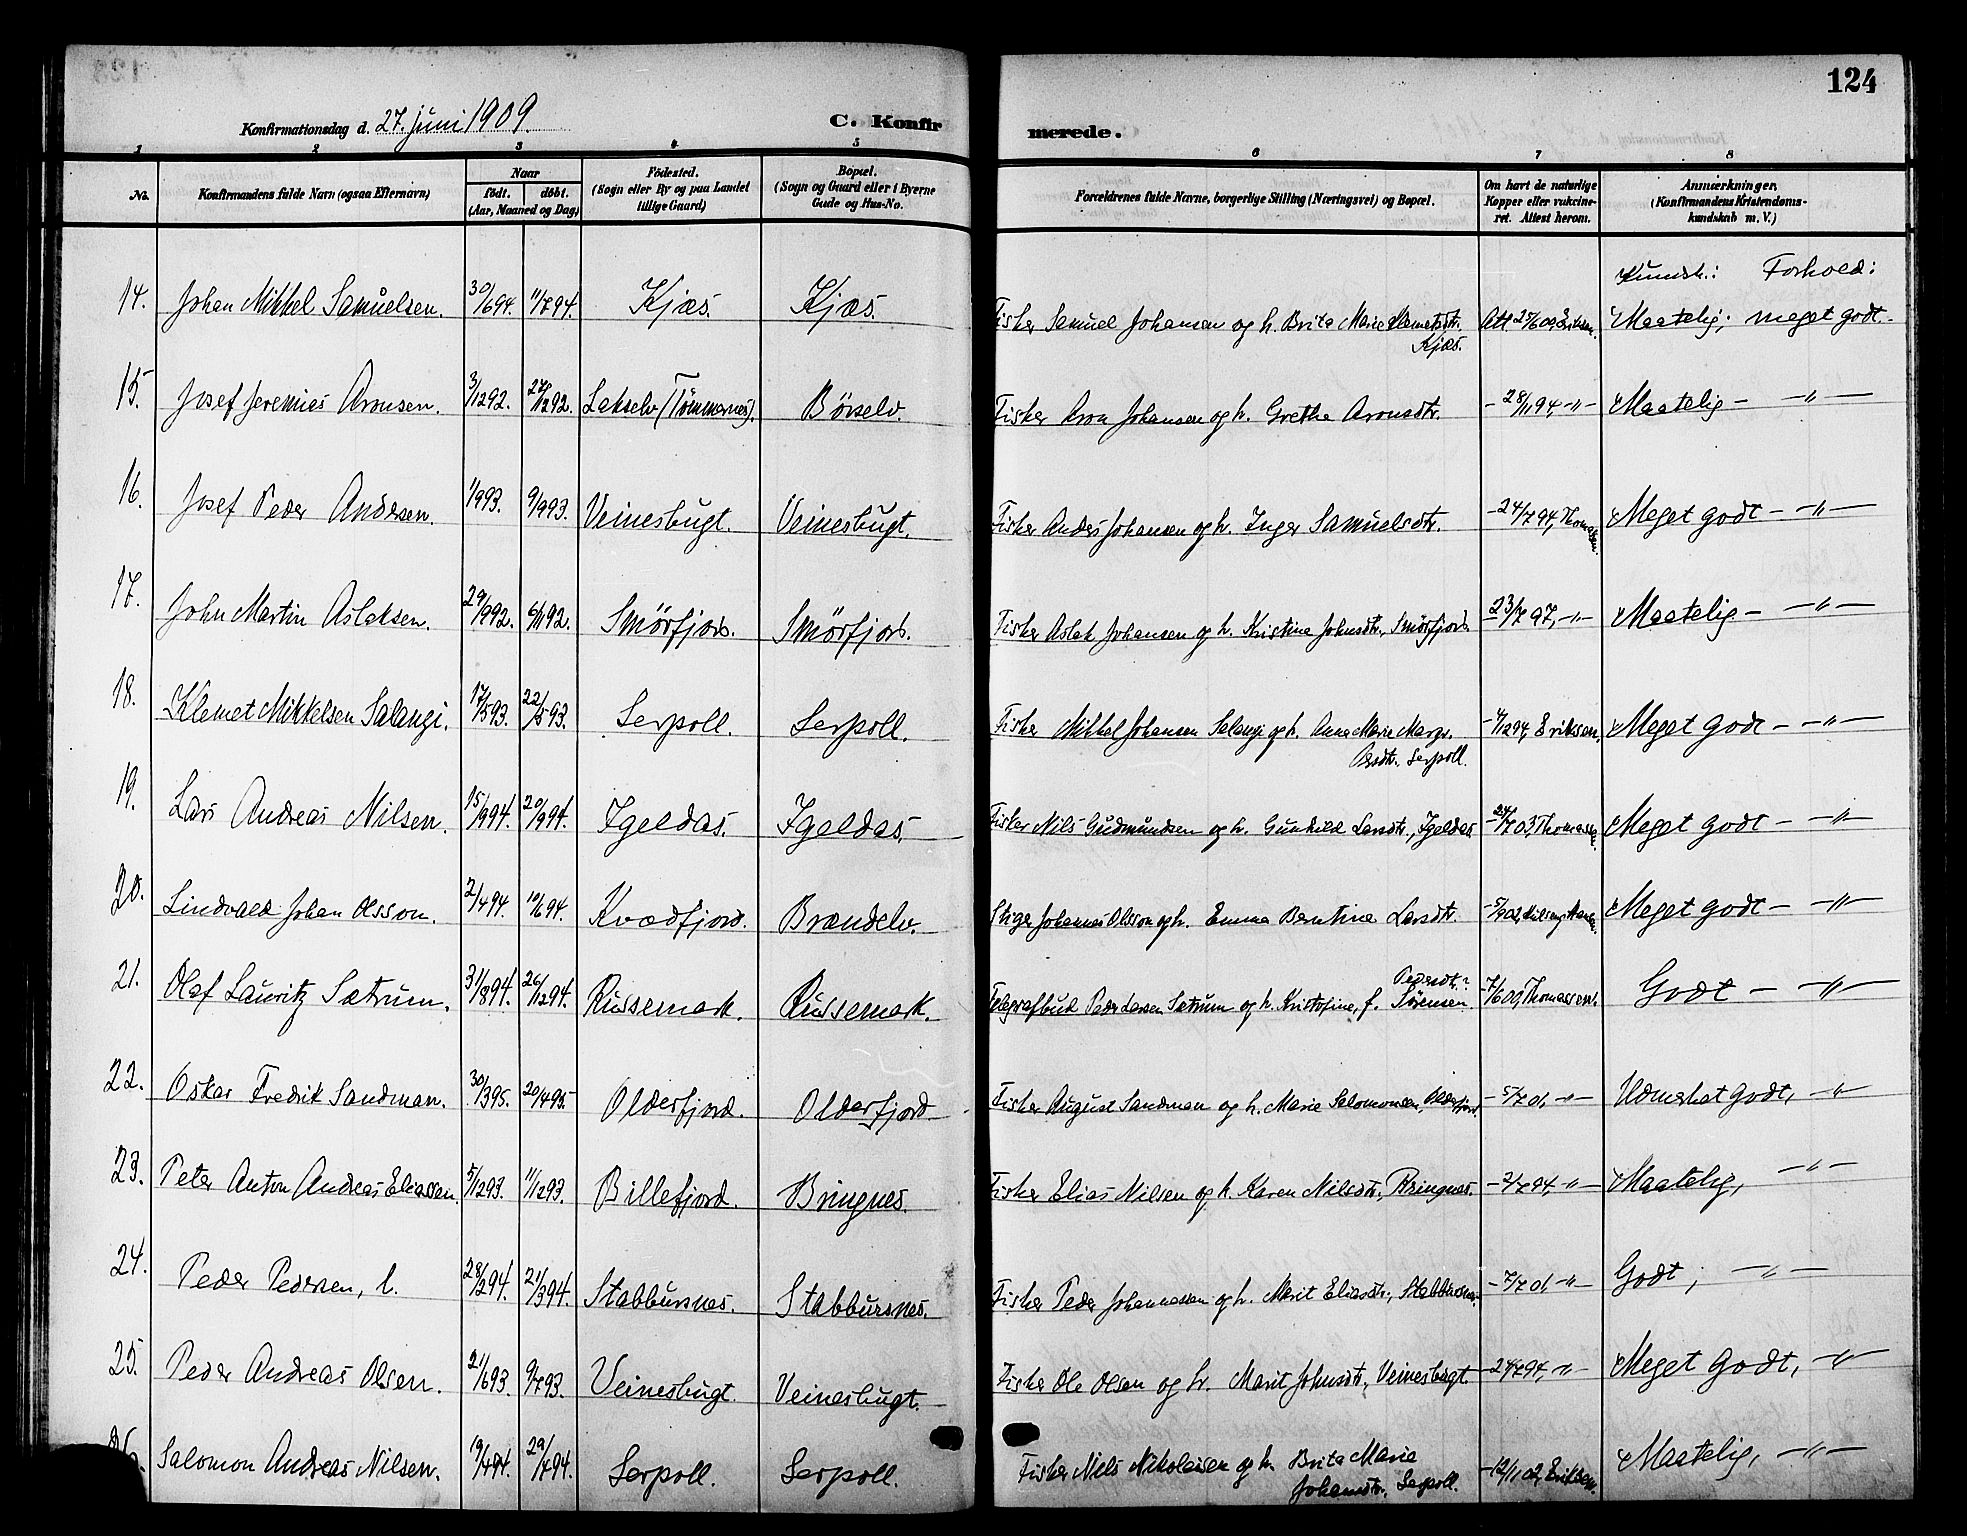 124
Konfirmationsdag d. 27. juni 1909. C. Konfirmerede.
1 2 3 4 5 6 7 8
No. Konfirmandens fulde Navn (ogsaa Efternavn) Naar født. døbt. (Aar, Maaned og Dag) Fødested. (Sogn eller By og paa Landet tillige Gaard) Bopæl. (Sogn og Gaard eller i Byerne Gade og Hus-No. Forældrenes fulde Navne, borgerlige Stilling (Næringsvei) og Bopæl. Om havt de naturlige Kopper eller vakcineret. Attest herom. Anmærkninger. (Konfirmandens Kristendomskundskab m. V.)
Kundsk.: Forhold:
14. Johan Mikkel Samuelsen. 30/694. 11/794. Kjæs. Kjæs. Fisker Samuel Johansen og h. Brita Marie Klemetsdtr. Kjæs. Att 25/609 Eriksen. Maatelig; meget godt.
15. Josef Jeremias Aronsen. 3/1292. 27/1292. Lakselv (Tömmernes). Börselv. Fisker Aron Johansen og h. Grethe Aronsdtr. – 28/1194 –"– Maatelig – –"–
16. Josef Peder Andersen. 1/993. 9/993. Veinesbugt. Veinesbugt. Fisker Anders Johansen og h. Inger Samuelsdtr. – 24/794, Thomassen. Meget godt – –"–
17. John Martin Aslaksen. 29/992. 6/1192. Smörfjord. Smörfjord. Fisker Aslak Johansen og h. Kristine Johnsdtr., Smörfjord. – 23/797, –"– Maatelig – –"–
18. Klemet Mikkelsen Salangi. 17/593. 22/593. Serpoll. Serpoll. Fisker Mikkel Johansen Salangi og h. Anna Marie Margr. Persdtr. Serpoll. – 4/1294, Eriksen. Meget godt – –"–
19. Lars Andreas Nilsen. 15/994. 20/994. Igeldas. Igeldas. Fisker Nils Gudmundsen og h. Gunhild Larsdtr., Igeldas. – 24/703, Thomassen. Meget godt – –"–
20. Lindvald Johan Olsson. 2/494. 10/694. Kvædfjord. Brændelv. Stiger Johannes Olsson og h. Emma Bentine Larsdtr. – 5/902, Meget godt – –"–
21. Olaf Lauritz Sætrum. 31/894. 26/1294. Russemark. Russemark. Telegrafbud Peder Larsen Sætrum og h. Kristofine, f. Pedersdtr.? Sörensen. – 7/609, Thomassen. Godt – –"–
22. Oskar Fredrik Sandman. 30/395. 20/495. Olderfjord. Olderfjord. Fisker August Sandman og h. Marie Salomonsen, Olderfjord. – 5/701, –"– Udmerket godt, –"–
23. Peter Anton Andreas Eliassen. 5/1293. 11/1293. Billefjord. Bringnes. Fisker Elias Nilsen og h. Karen Nilsdtr., Bringnes. – 2/794, –"– Maatelig, –"–
24. Peder Pedersen, l. 28/294. 21/394. Stabbursnes. Stabbursnes. Fisker Peder Johannessen og h. Marit Eliasdtr., Stabbursnes. – 7/701, –"– Godt; –"–
25. Peder Andreas Olsen. 21/693. 9/793. Veinesbugt. Veinesbugt. Fisker Ole Olsen og h. Marit Johnsdtr., Veinesbugt. – 24/794, –"– Meget godt, –"–
26. Salomon Andreas Nilsen. 19/494. 29/794. Serpoll. Serpoll. Fisker Nils Nikolaisen og h. Brita Marie Johansdtr., Serpoll. – 12/1102, Eriksen. Maatelig, –"–